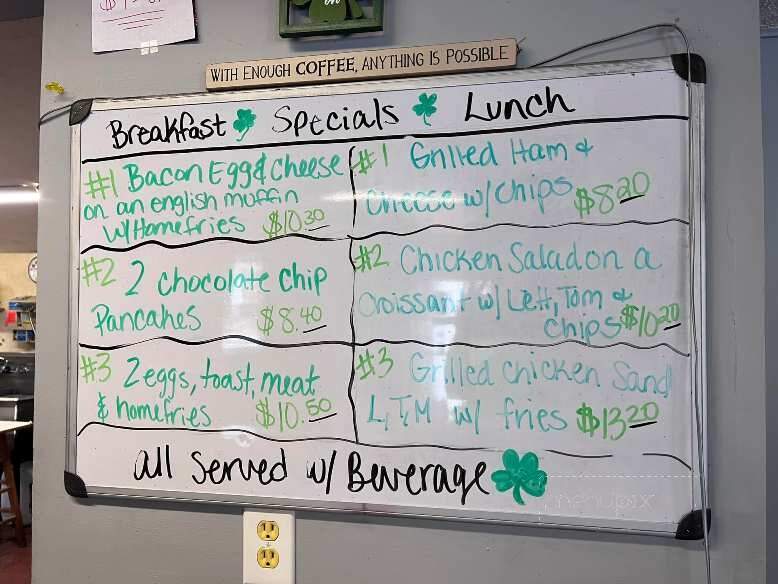 WITH ENOUGH COFFEE, ANYTHING IS POSSIBLE
Breakfast Specials Lunch
#1 Bacon Egg & Cheese
on an english muffin
w/Homefries $10.30
#2 2 chocolate chip
Pancakes $8.40
#3 2 eggs, toast, meat
& homefries $10.50
#1 Grilled Ham &
Cheese w/ Chips $8.20
#2 Chicken Salad on a
Croissant w/ Lett, Tom &
Chips $10.20
#3 Grilled chicken Sand
L, T, M w/ fries $13.20
all Served w/ Beverage
menupix